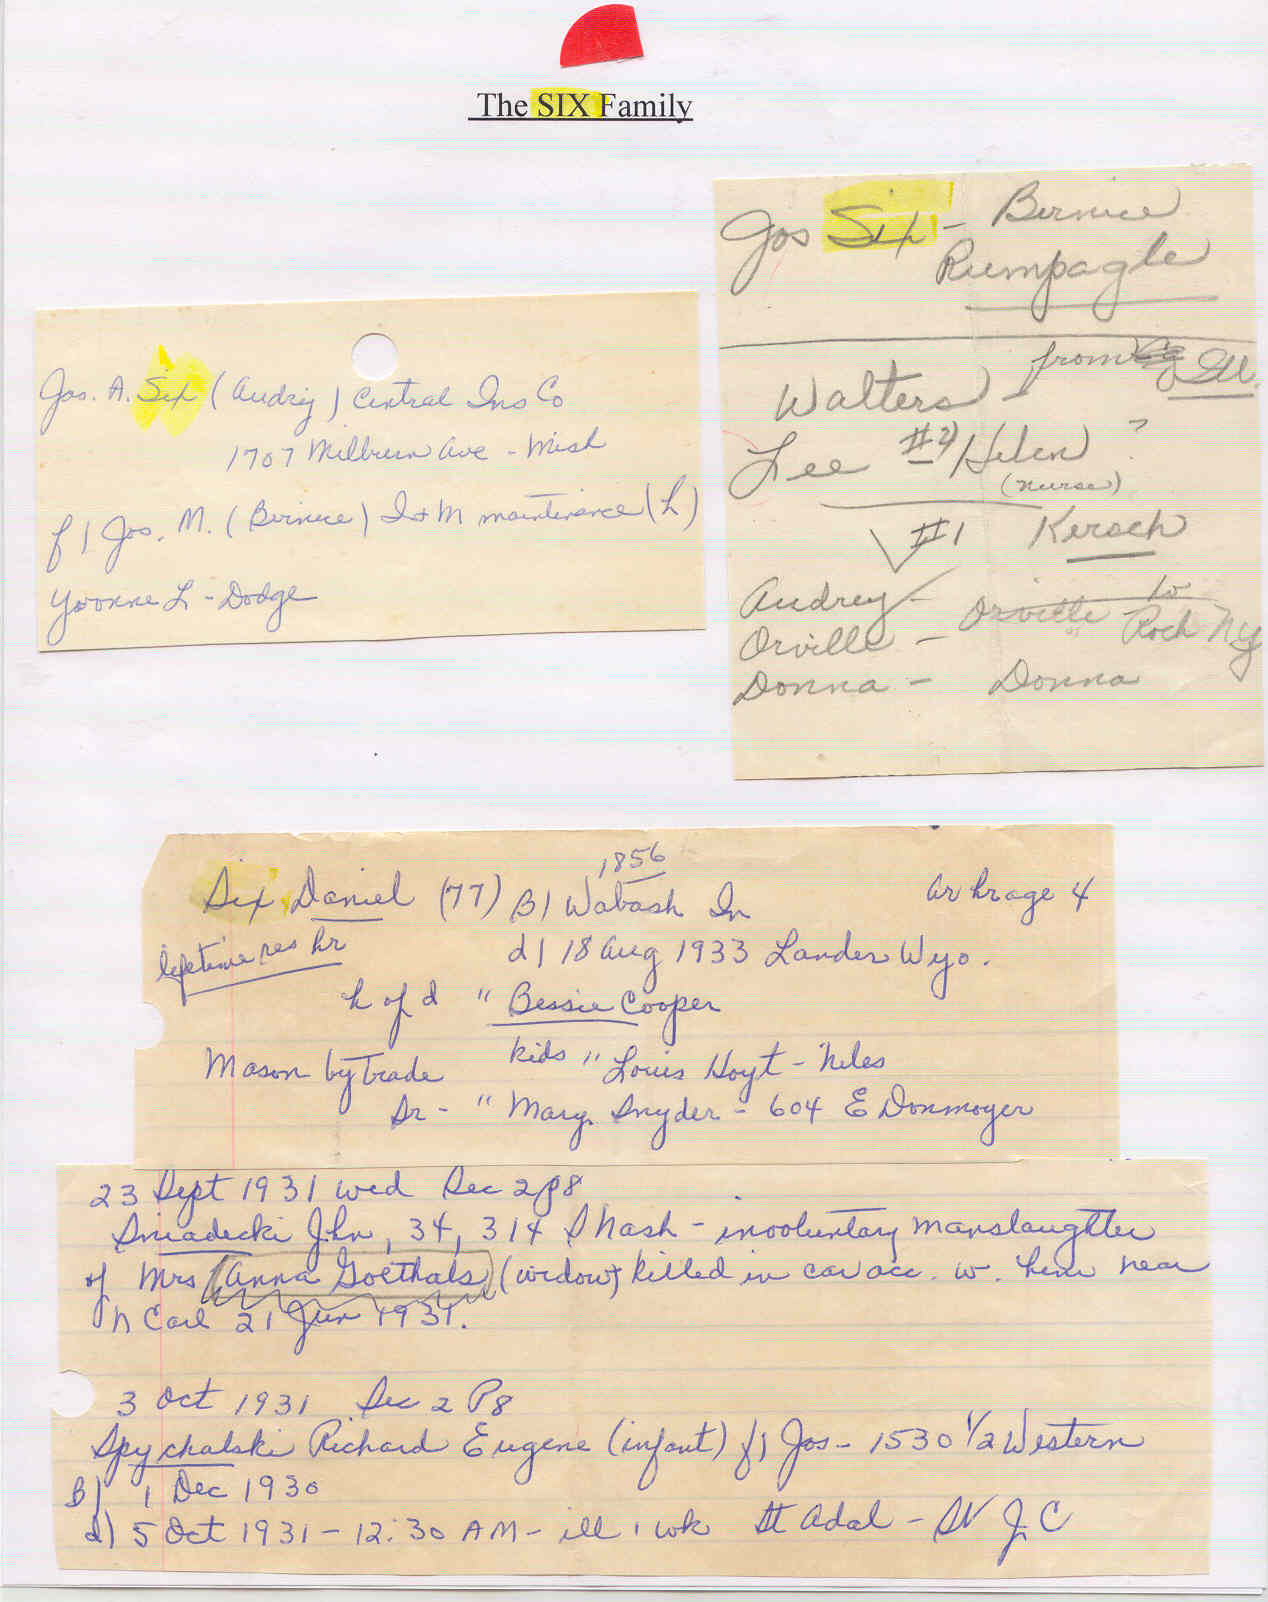 The SIX Family
Jos Six - Bernice
Rumpagle
from Ill.
Walters -
Lee #2 Helen ?
(nurse)
#1 Kersch
Audrey -
Orville - Orville to Roch NY
Donna - Donna
Jos. A. Six (Audrey) Central Ins Co
1707 Milburn Ave - Mish
f) Jos. M. (Bernice) I+M maintenance (L)
Yvonne L - Dodge
1856
Six Daniel (77) B) Wabash In
lifetime res hr
d) 18 Aug 1933 Lander Wyo.
h of d " Bessie Cooper
Mason by trade kids " Louis Hoyt - Niles
Sr - " Mary Snyder - 604 E Donmoyer
23 Sept 1931 wed Sec 2 p8
Sniadecki John, 34, 314 S Nash - inooluntary manslaughter
of Mrs Anna Goethals (widow) killed in car acc. w. him near
N Carl 21 Jun 1931.
3 Oct 1931 Sec 2 P8
Spychalski Richard Eugene (infant) f) Jos - 1530 1/2 Western
B) 1 Dec 1930
d) 5 Oct 1931 - 12:30 AM - ill 1 wk St Adal - SV J C